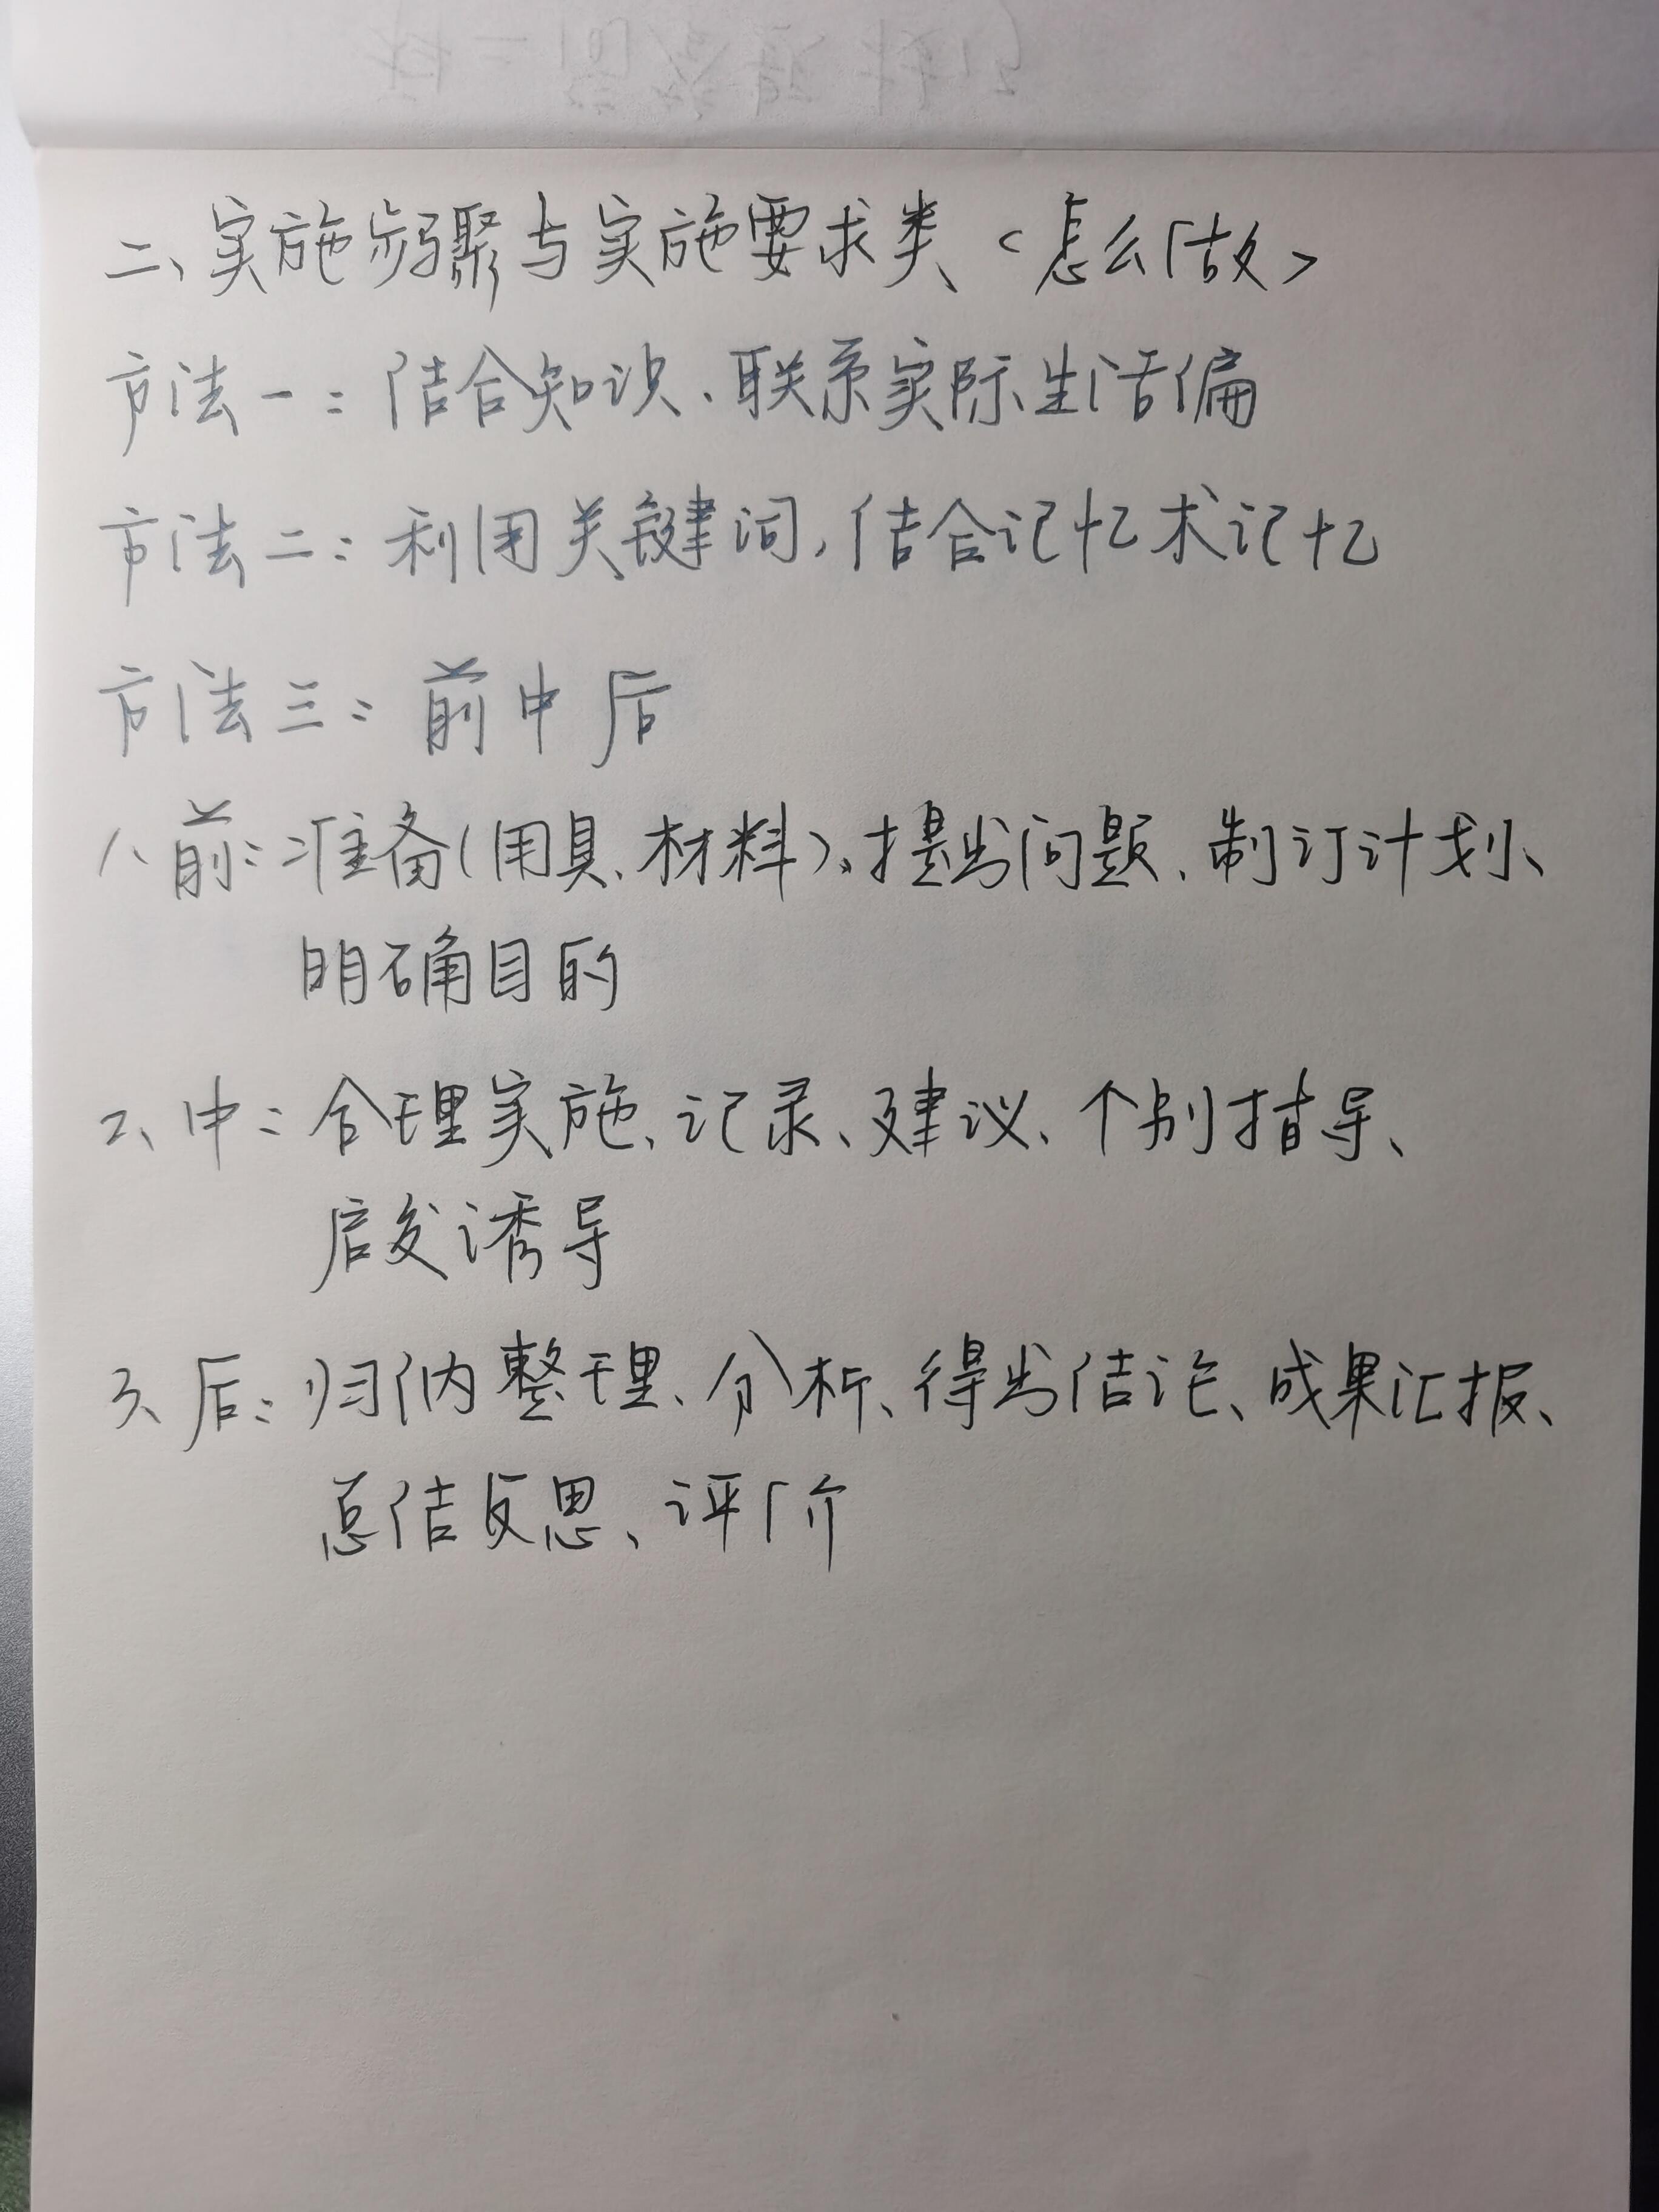 二、实施步骤与实施要求类<怎么做>
方法一：结合知识、联系实际生活编
方法二：利用关键词，结合记忆术记忆
方法三：前中后
1、前：准备(用具、材料)、提出问题、制订计划、
明确目的
2、中：合理实施、记录、建议、个别指导、
启发诱导
3、后：归纳整理、分析、得出结论、成果汇报、
总结反思、评价